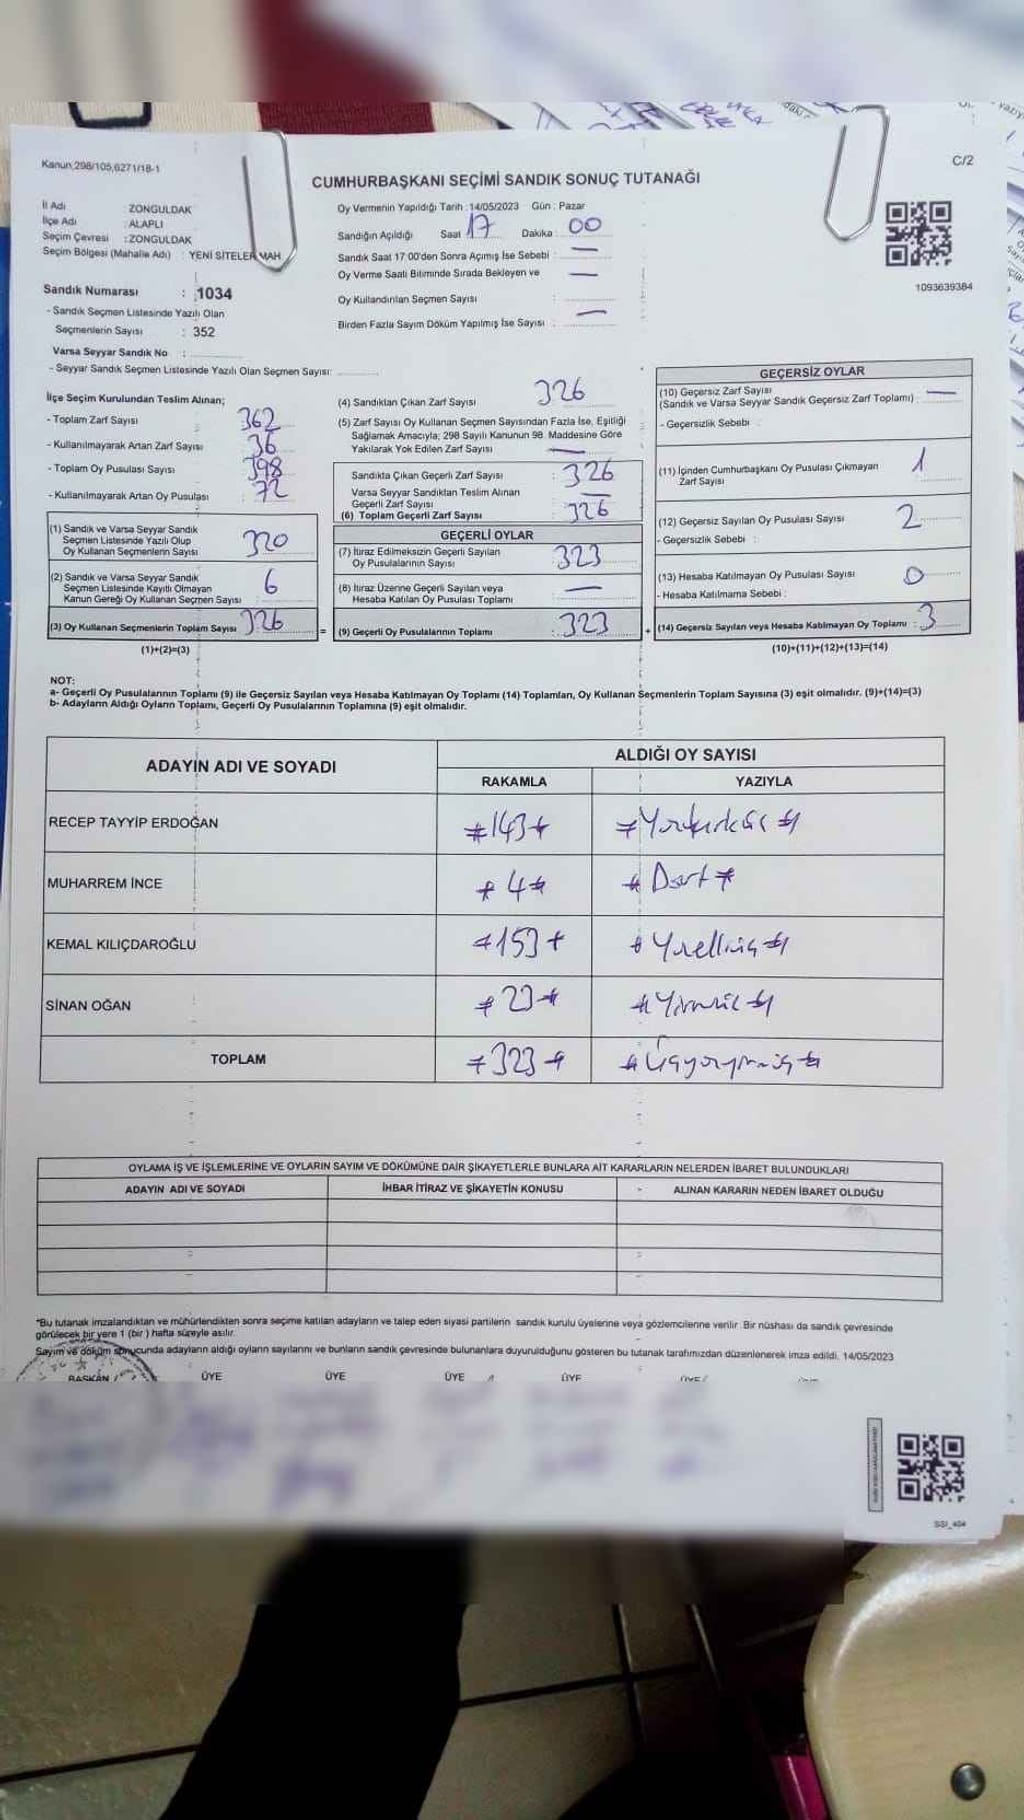 Kanun,298/105,6271/18-1
C/2
CUMHURBAŞKANI SEÇİMİ SANDIK SONUÇ TUTANAĞI
İl Adı : ZONGULDAK
İlçe Adı : ALAPLI
Seçim Çevresi : ZONGULDAK
Seçim Bölgesi (Mahalle Adı) : YENİ SİTELER MAH.
Oy Vermenin Yapıldığı Tarih : 14/05/2023 Gün : Pazar
Sandığın Açıldığı Saat 17 Dakika : 00
Sandık Saat 17:00'den Sonra Açımış İse Sebebi : —
Oy Verme Saati Bitiminde Sırada Bekleyen ve —
Oy Kullandırılan Seçmen Sayısı :
Birden Fazla Sayım Döküm Yapılmış İse Sayısı : —
1093639384
Sandık Numarası : 1034
- Sandık Seçmen Listesinde Yazılı Olan
Seçmenlerin Sayısı : 352
Varsa Seyyar Sandık No :
- Seyyar Sandık Seçmen Listesinde Yazılı Olan Seçmen Sayısı:
İlçe Seçim Kurulundan Teslim Alınan;
- Toplam Zarf Sayısı : 362
- Kullanılmayarak Artan Zarf Sayısı : 36
- Toplam Oy Pusulası Sayısı : 398
- Kullanılmayarak Artan Oy Pusulası : 72
(1) Sandık ve Varsa Seyyar Sandık
Seçmen Listesinde Yazılı Olup
Oy Kullanan Seçmenlerin Sayısı : 320
(2) Sandık ve Varsa Seyyar Sandık
Seçmen Listesinde Kayıtlı Olmayan
Kanun Gereği Oy Kullanan Seçmen Sayısı : 6
(3) Oy Kullanan Seçmenlerin Toplam Sayısı : 326
(1)+(2)=(3)
(4) Sandıktan Çıkan Zarf Sayısı : 326
(5) Zarf Sayısı Oy Kullanan Seçmen Sayısından Fazla İse, Eşitliği
Sağlamak Amacıyla; 298 Sayılı Kanunun 98. Maddesine Göre
Yakılarak Yok Edilen Zarf Sayısı : —
Sandıkta Çıkan Geçerli Zarf Sayısı : 326
Varsa Seyyar Sandıktan Teslim Alınan
Geçerli Zarf Sayısı : —
(6) Toplam Geçerli Zarf Sayısı : 326
GEÇERLİ OYLAR
(7) İtiraz Edilmeksizin Geçerli Sayılan
Oy Pusulalarının Sayısı : 323
(8) İtiraz Üzerine Geçerli Sayılan veya
Hesaba Katılan Oy Pusulası Toplamı : —
= (9) Geçerli Oy Pusulalarının Toplamı : 323 +
GEÇERSİZ OYLAR
(10) Geçersiz Zarf Sayısı
(Sandık ve Varsa Seyyar Sandık Geçersiz Zarf Toplamı) : —
- Geçersizlik Sebebi :
(11) İçinden Cumhurbaşkanı Oy Pusulası Çıkmayan
Zarf Sayısı : 1
(12) Geçersiz Sayılan Oy Pusulası Sayısı : 2
- Geçersizlik Sebebi :
(13) Hesaba Katılmayan Oy Pusulası Sayısı : 0
- Hesaba Katılmama Sebebi :
(14) Geçersiz Sayılan veya Hesaba Katılmayan Oy Toplamı : 3
(10)+(11)+(12)+(13)=(14)
NOT:
a- Geçerli Oy Pusulalarının Toplamı (9) ile Geçersiz Sayılan veya Hesaba Katılmayan Oy Toplamı (14) Toplamları, Oy Kullanan Seçmenlerin Toplam Sayısına (3) eşit olmalıdır. (9)+(14)=(3)
b- Adayların Aldığı Oyların Toplamı, Geçerli Oy Pusulalarının Toplamına (9) eşit olmalıdır.
ADAYIN ADI VE SOYADI
ALDIĞI OY SAYISI
RAKAMLA YAZIYLA
RECEP TAYYİP ERDOĞAN #143#
MUHARREM İNCE #4# #Dört#
KEMAL KILIÇDAROĞLU #153# #Yüzelliüç#
SİNAN OĞAN #23# #Yirmiüç#
TOPLAM #323# #Üçyüzyirmiüç#
OYLAMA İŞ VE İŞLEMLERİNE VE OYLARIN SAYIM VE DÖKÜMÜNE DAİR ŞİKAYETLERLE BUNLARA AİT KARARLARIN NELERDEN İBARET BULUNDUKLARI
ADAYIN ADI VE SOYADI İHBAR İTİRAZ VE ŞİKAYETİN KONUSU ALINAN KARARIN NEDEN İBARET OLDUĞU
*Bu tutanak imzalandıktan ve mühürlendikten sonra seçime katılan adayların ve talep eden siyasi partilerin sandık kurulu üyelerine veya gözlemcilerine verilir. Bir nüshası da sandık çevresinde
görülecek bir yere 1 (bir) hafta süreyle asılır.
Sayım ve döküm sonucunda adayların aldığı oyların sayılarını ve bunların sandık çevresinde bulunanlara duyurulduğunu gösteren bu tutanak tarafımızdan düzenlenerek imza edildi. 14/05/2023
BAŞKAN ÜYE ÜYE ÜYE ÜYE ÜYE
SSI_404